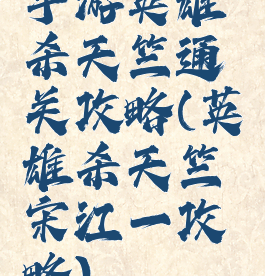 手游英雄
杀天竺通
关攻略(英
雄杀天竺
宋江一攻
略)